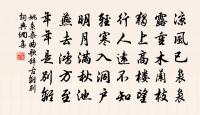 涼風已裊裊
露重木蘭枝
獨上高樓望
行人遠不知
輕寒入洞戶
明月滿秋池
燕去鴻方至
年年是別離
姚系雜曲歌辭古別離
詞典網集